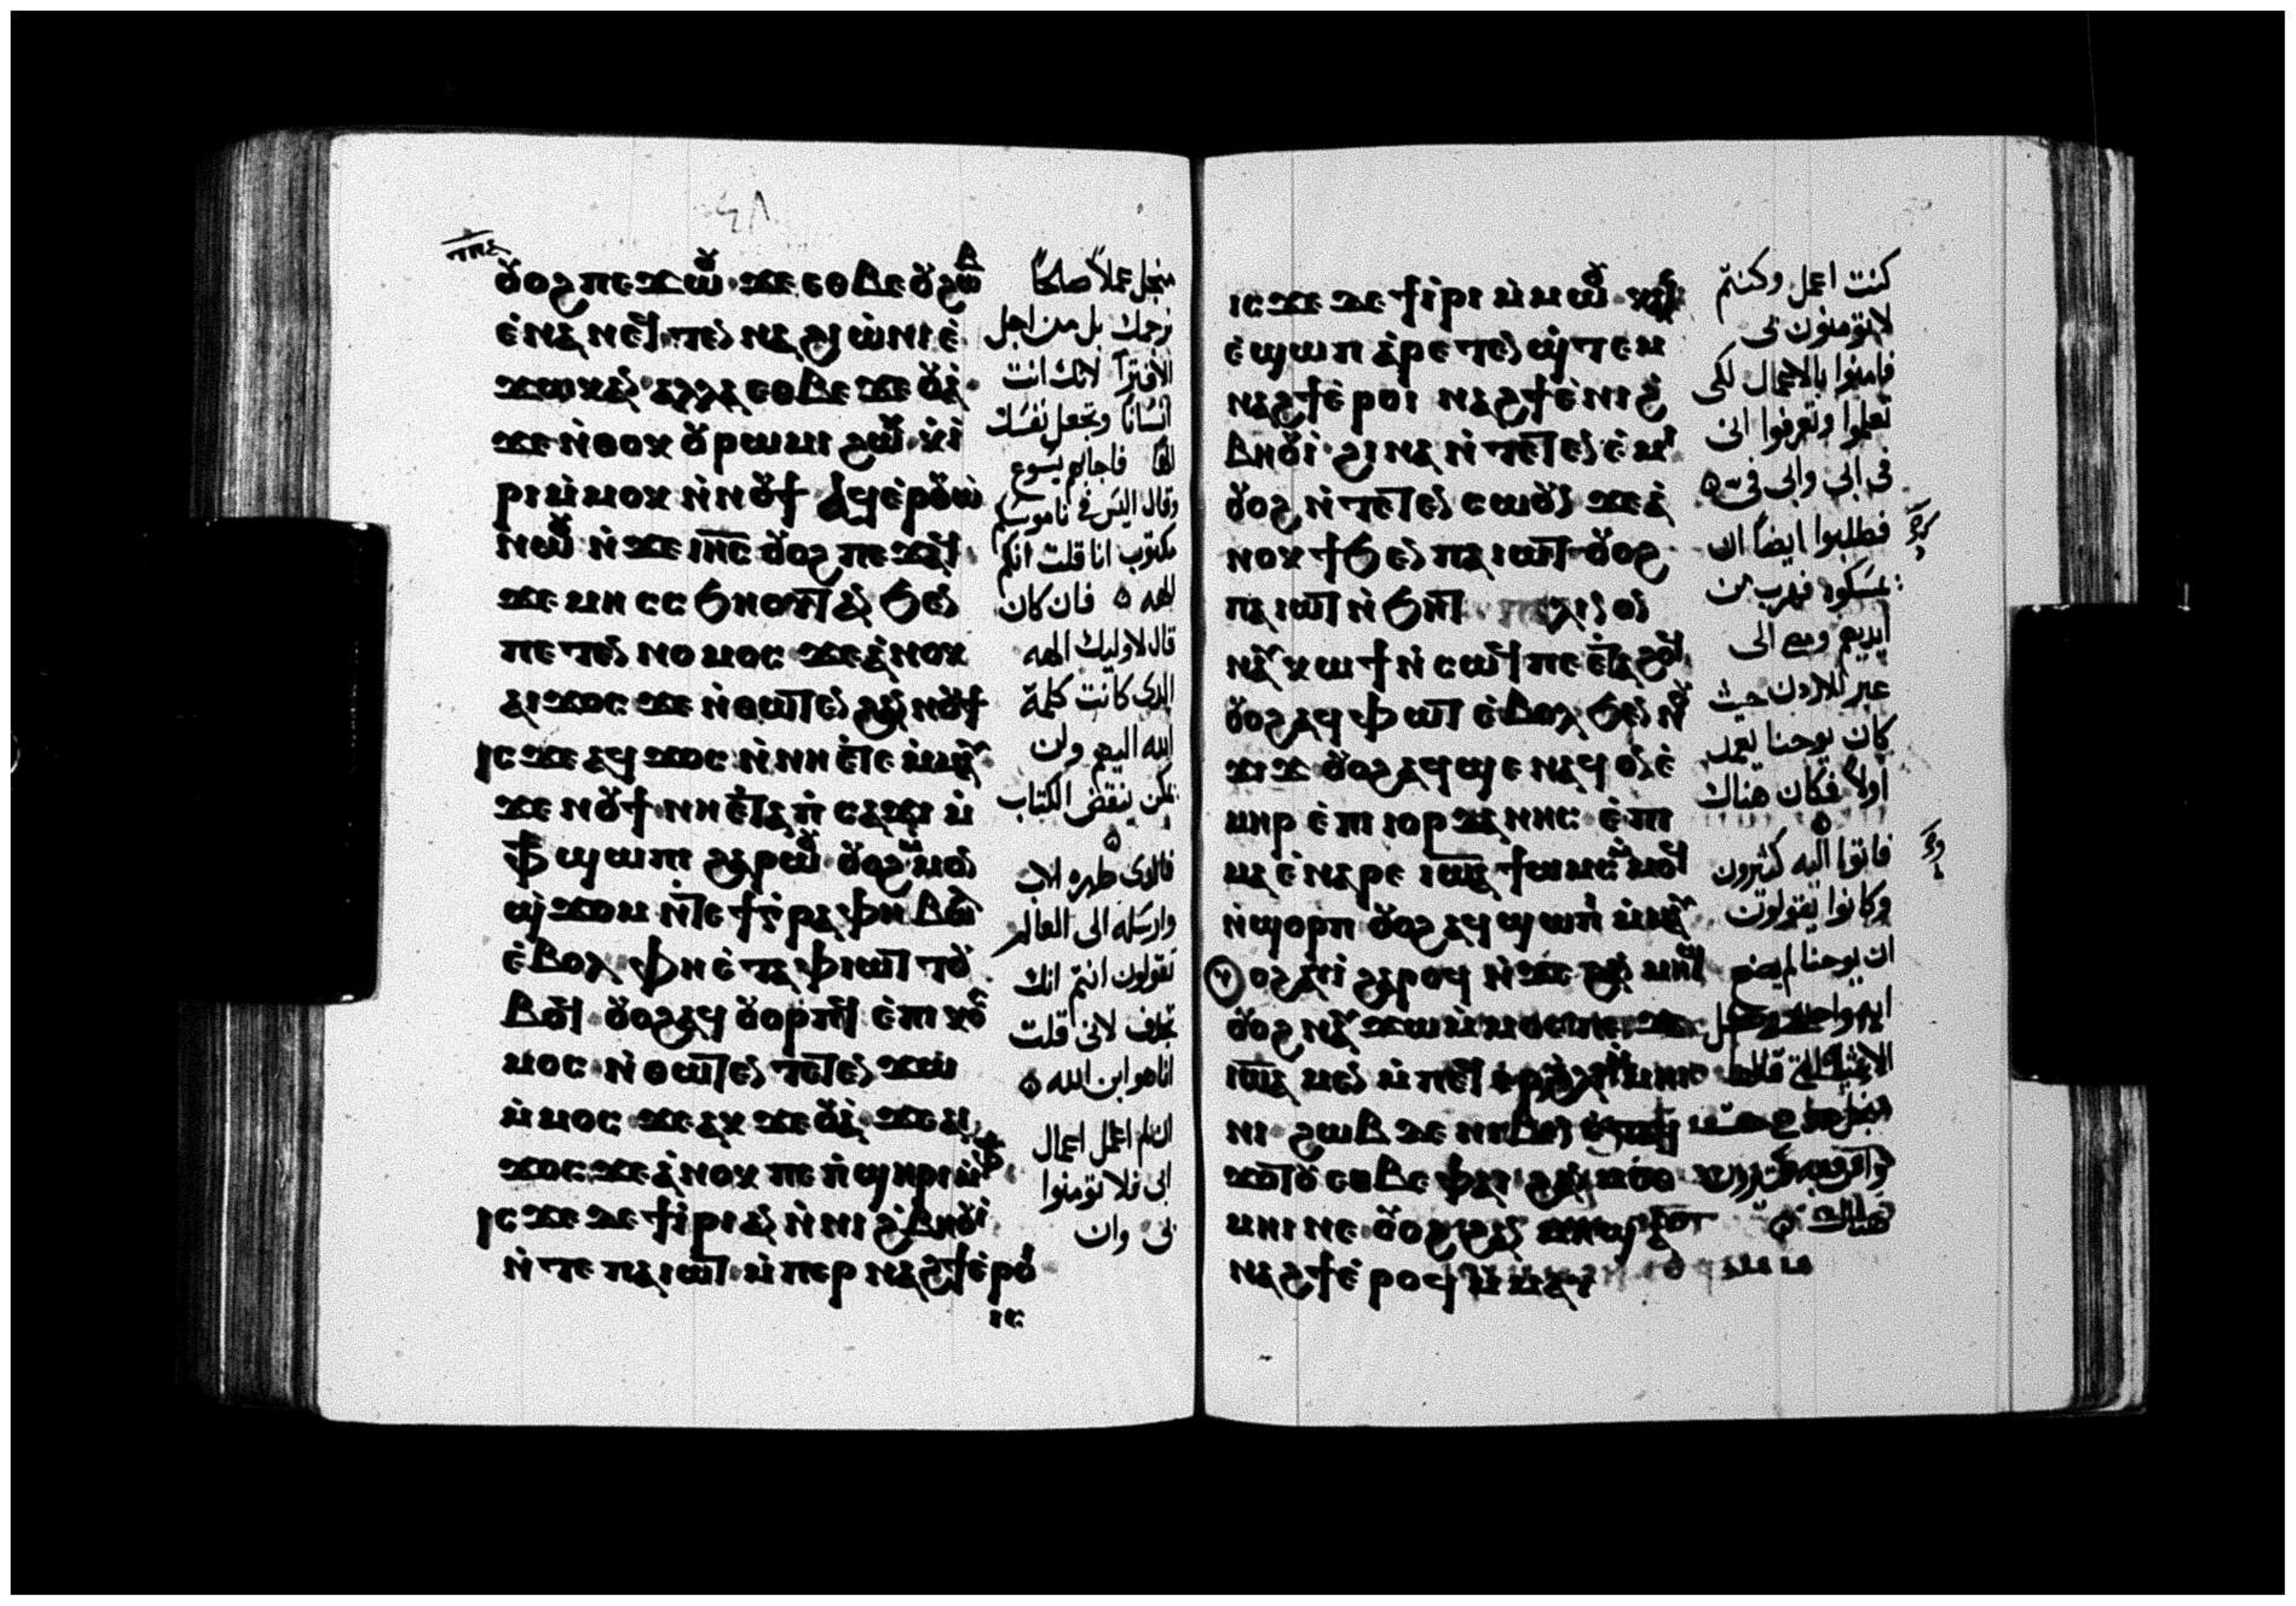 ⲟⲩⲟϩ ⲡⲉϫⲱⲟⲩ ϫⲉ ⲉⲑⲃⲉ ⲟⲩϩⲱⲃ
ⲉ̀ⲛⲁⲛⲉϥ ⲧⲉⲛⲛⲁϩⲓⲱ̀ⲛⲓ ⲉ̀
ϫⲱⲕ ⲁⲛ ⲁⲗⲗⲁ ⲉⲑⲃⲉ ϫⲉⲟⲩⲁ̀
ϫⲉ ⲛ̀ⲑⲟⲕ ⲟⲩⲣⲱⲙⲓ ϩⲱⲕ ⲕⲓ̀
ⲣⲓ ⲙ̀ⲙⲟⲕ ⲛ̀ⲛⲟⲩϯ ⲁϥⲉ̀ⲣⲟⲩⲱ̀
ⲛⲱⲟⲩ ⲛ̀ϫⲉ ⲓⲏ̅ⲥ̅ ⲟⲩⲟϩ ⲡⲉϫⲁϥ
ϫⲉ ⲙⲏ ⲥⲥϧⲏⲟⲩⲧ ⲁⲛ ϧⲉⲛ
ⲡⲉⲧⲉⲛⲛⲟⲙⲟⲥ ϫⲉ ⲁ̀ⲛⲟⲕ
ⲁⲓϫⲟⲥ ϫⲉ ⲛ̀ⲑⲱⲧⲉⲛ ϩⲁⲛⲛⲟⲩϯ
ⲓⲥϫⲉ ⲁϥϫⲟⲥ ⲛ̀ⲛⲏ ⲉ̀ⲧⲉ ⲙ̀ⲙⲁⲩ
ϫⲉ ⲛⲟⲩϯ ⲛⲏ ⲉ̀ⲧⲁ ⲡ̀ⲥⲁϫⲓ ⲙ̀
ⲫϯ ϣⲱⲡⲓ ϩⲁⲣⲱⲟⲩ ⲟⲩⲟϩ ⲙ̀ⲙⲟⲛ
ϣ̀ϫⲟⲙ ⲛ̀ⲧⲉ ϯⲅ̀ⲣⲁⲫⲏ ⲃⲱⲗ
ⲉ̀ⲃⲟⲗ ⲫⲏ ⲉ̀ⲧⲁ ⲫⲓⲱⲧ ⲧⲟⲩ
ⲃⲟϥ ⲟⲩⲟϩ ⲁϥⲟⲩⲟⲣⲡϥ ⲉ̀ⲡⲓⲕⲟⲥ
ⲙⲟⲥ ⲛ̀ⲑⲱⲧⲉⲛ ⲧⲉⲧⲉⲛϫⲱ
ⲙ̀ⲙⲟⲥ ϫⲉ ⲁⲕϫⲉⲟⲩⲁ̀ ϫⲉ ⲁⲓ
ϫⲟⲥ ϫⲉ ⲁ̀ⲛⲟⲕ ⲡⲉ ⲡ̀ϣⲏⲣⲓ ⲙ̀ⲫϯ
ⲓⲥϫⲉ ϫⲉ ϯⲓ̀ⲣⲓ ⲁⲛ ⲛ̀ⲛⲓϩ̀ⲃⲏⲟⲩⲓ̀
ⲛ̀ⲧⲉ ⲡⲁⲓⲱⲧ ⲙ̀ⲡⲉⲣⲛⲁϩϯ ⲉ̀ⲣⲟⲓ
ⲓⲥ
تعمل عملاً صالحًا
نرجمك بل من اجل
الافترا لانك انت
انسانا وتجعل نفسك
الها فاجابهم يسوع
وقال اليس في ناموسكم
مكتوب انا قلت انكم
الهه فان كان
قال لاوليك الهه
الدى كانت كلمة
الله اليهم ولن
يمكن ينقض الكتاب
فالدى طهره الاب
وارسله الى العالم
تقولون انتم انك
تجدف لانى قلت
انا هو ابن الله
ان لم اعمل اعمال
ابى فلا تؤمنوا
بى وان
ⲓⲥϫⲉ ϫⲉ ϯⲓ̀ⲣⲓ ⲙ̀ⲙⲱⲟⲩ ⲕⲁⲛ
ⲉ̀ϣⲱⲡ ⲁ̀ⲣⲉⲧⲉⲛϣ̀ⲧⲉⲙ
ⲛⲁϩϯ ⲉ̀ⲣⲟⲓ ⲛⲁϩϯ ⲉ̀ⲛⲓϩ̀
ⲃⲏⲟⲩⲓ̀ ϩⲓⲛⲁ ⲛ̀ⲧⲉⲧⲉⲛⲉ̀ⲙⲓ
ⲟⲩⲟϩ ⲛ̀ⲧⲉⲧⲉⲛⲥⲱⲟⲩⲛ ϫⲉ ⲁ̀
ⲛⲟⲕ ϯϧⲉⲛ ⲡⲁⲓⲱⲧ ⲟⲩⲟϩ
ⲡⲁⲓⲱⲧ ⲛ̀ϧⲏⲧ
ⲛⲁⲩⲕⲱϯ ⲛ̀ⲥⲱϥ ⲡⲉ ⲉ̀ⲧⲁϩⲟϥ
ⲟⲩⲟϩ ⲁϥⲫⲱⲧ ⲉ̀ⲃⲟⲗ ϧⲉⲛ ⲛⲟⲩ
ϫⲓϫ ⲟⲩⲟϩ ⲁϥϣⲉ ⲛⲁϥ ⲟⲛ ⲉ̀
ⲙⲏⲣ ⲉ̀ⲡⲓⲓⲟⲣⲇⲁⲛⲏⲥ ⲉ̀ⲡⲓ
ⲙⲁ ⲉ̀ⲛⲁⲣⲉ ⲓⲱ̅ⲁ̅ ϯⲱⲙⲥ ⲙ̀ⲙⲟϥ
ⲛ̀ϣⲟⲣⲡ ⲟⲩⲟϩ ⲁϥϣⲱⲡⲓ ⲙ̀ⲙⲁⲩ
ⲟⲩⲟϩ ⲁⲩⲓ̀ ϩⲁⲣⲟϥ ⲛ̀ϫⲉ ϩⲁⲛⲙⲏϣ
ⲟⲩⲟϩ ⲛⲁⲩϫⲱ ⲙ̀ⲙⲟⲥ ⲡⲉ ϫⲉ
ⲓⲱ̅ⲁ̅ ⲙⲉⲛ ⲙ̀ⲡⲉϥⲉⲣ
ⲛⲓ ϩⲱⲃ ⲇⲉ ⲛⲓⲃⲉⲛ
ϫⲟⲧⲟⲩ ⲉⲑⲃⲉ ⲫⲁⲓ
ⲙⲏⲓ ⲛⲉ ⲟⲩⲟϩ
ⲛⲁϩϯ ⲉ̀ⲣⲟϥ ⲙ̀ⲙⲁⲩ
كنت اعمل وكنتم
لا تؤمنون بى
فامنوا بالاعمال لكى
تعلموا وتعرفوا انى
فى ابى وابى فى
فطلبوا ايضًا ان
يمسكوه فهرب من
ايديهم ومضى الى
عبر الاردن حيث
كان يوحنا يعمد
اولاً فكان هناك
فاتوا اليه كثيرون
وكانوا يقولون
ان يوحنا لم يصنع